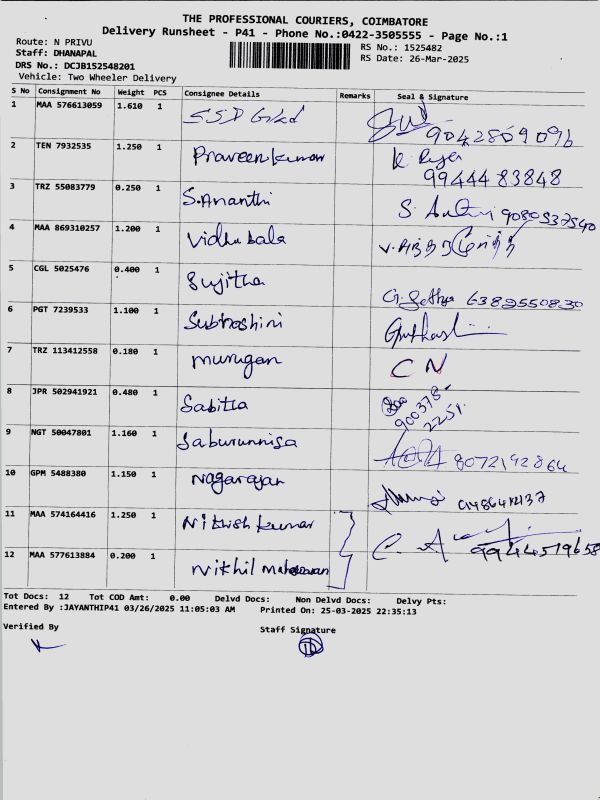 THE PROFESSIONAL COURIERS, COIMBATORE
Delivery Runsheet - P41 - Phone No.:0422-3505555 - Page No.:1
Route: N PRIVU
RS No.: 1525482
Staff: DHANAPAL
RS Date: 26-Mar-2025
DRS No.: DCJB152548201
Vehicle: Two Wheeler Delivery
S No Consignment No Weight PCS Consignee Details Remarks Seal & Signature
1 MAA 576613059 1.610 1 SSD
9042869096
2 TEN 7932535 1.250 1 Praveenkumar
99444 83848
3 TRZ 55083779 0.250 1 S.Ananthi S. 9080537540
4 MAA 869310257 1.200 1 Vidhubala
5 CGL 5025476 0.400 1 Sujitha G. Sathya 6382550830
6 PGT 7239533 1.100 1 Subhashini
7 TRZ 113412558 0.180 1 murugan C N
8 JPR 502941921 0.480 1 Sabitha
900378
2251
9 NGT 50047801 1.160 1 Saburunnisa 8072142864
10 GPM 5488380 1.150 1 Nagarajan
11 MAA 574164416 1.250 1 Nithish kumar
12 MAA 577613884 0.200 1 Nikhil 9944519658
Tot Docs: 12 Tot COD Amt: 0.00 Delvd Docs: Non Delvd Docs: Delvy Pts:
Entered By :JAYANTHIP41 03/26/2025 11:05:03 AM Printed On: 25-03-2025 22:35:13
Verified By Staff Signature